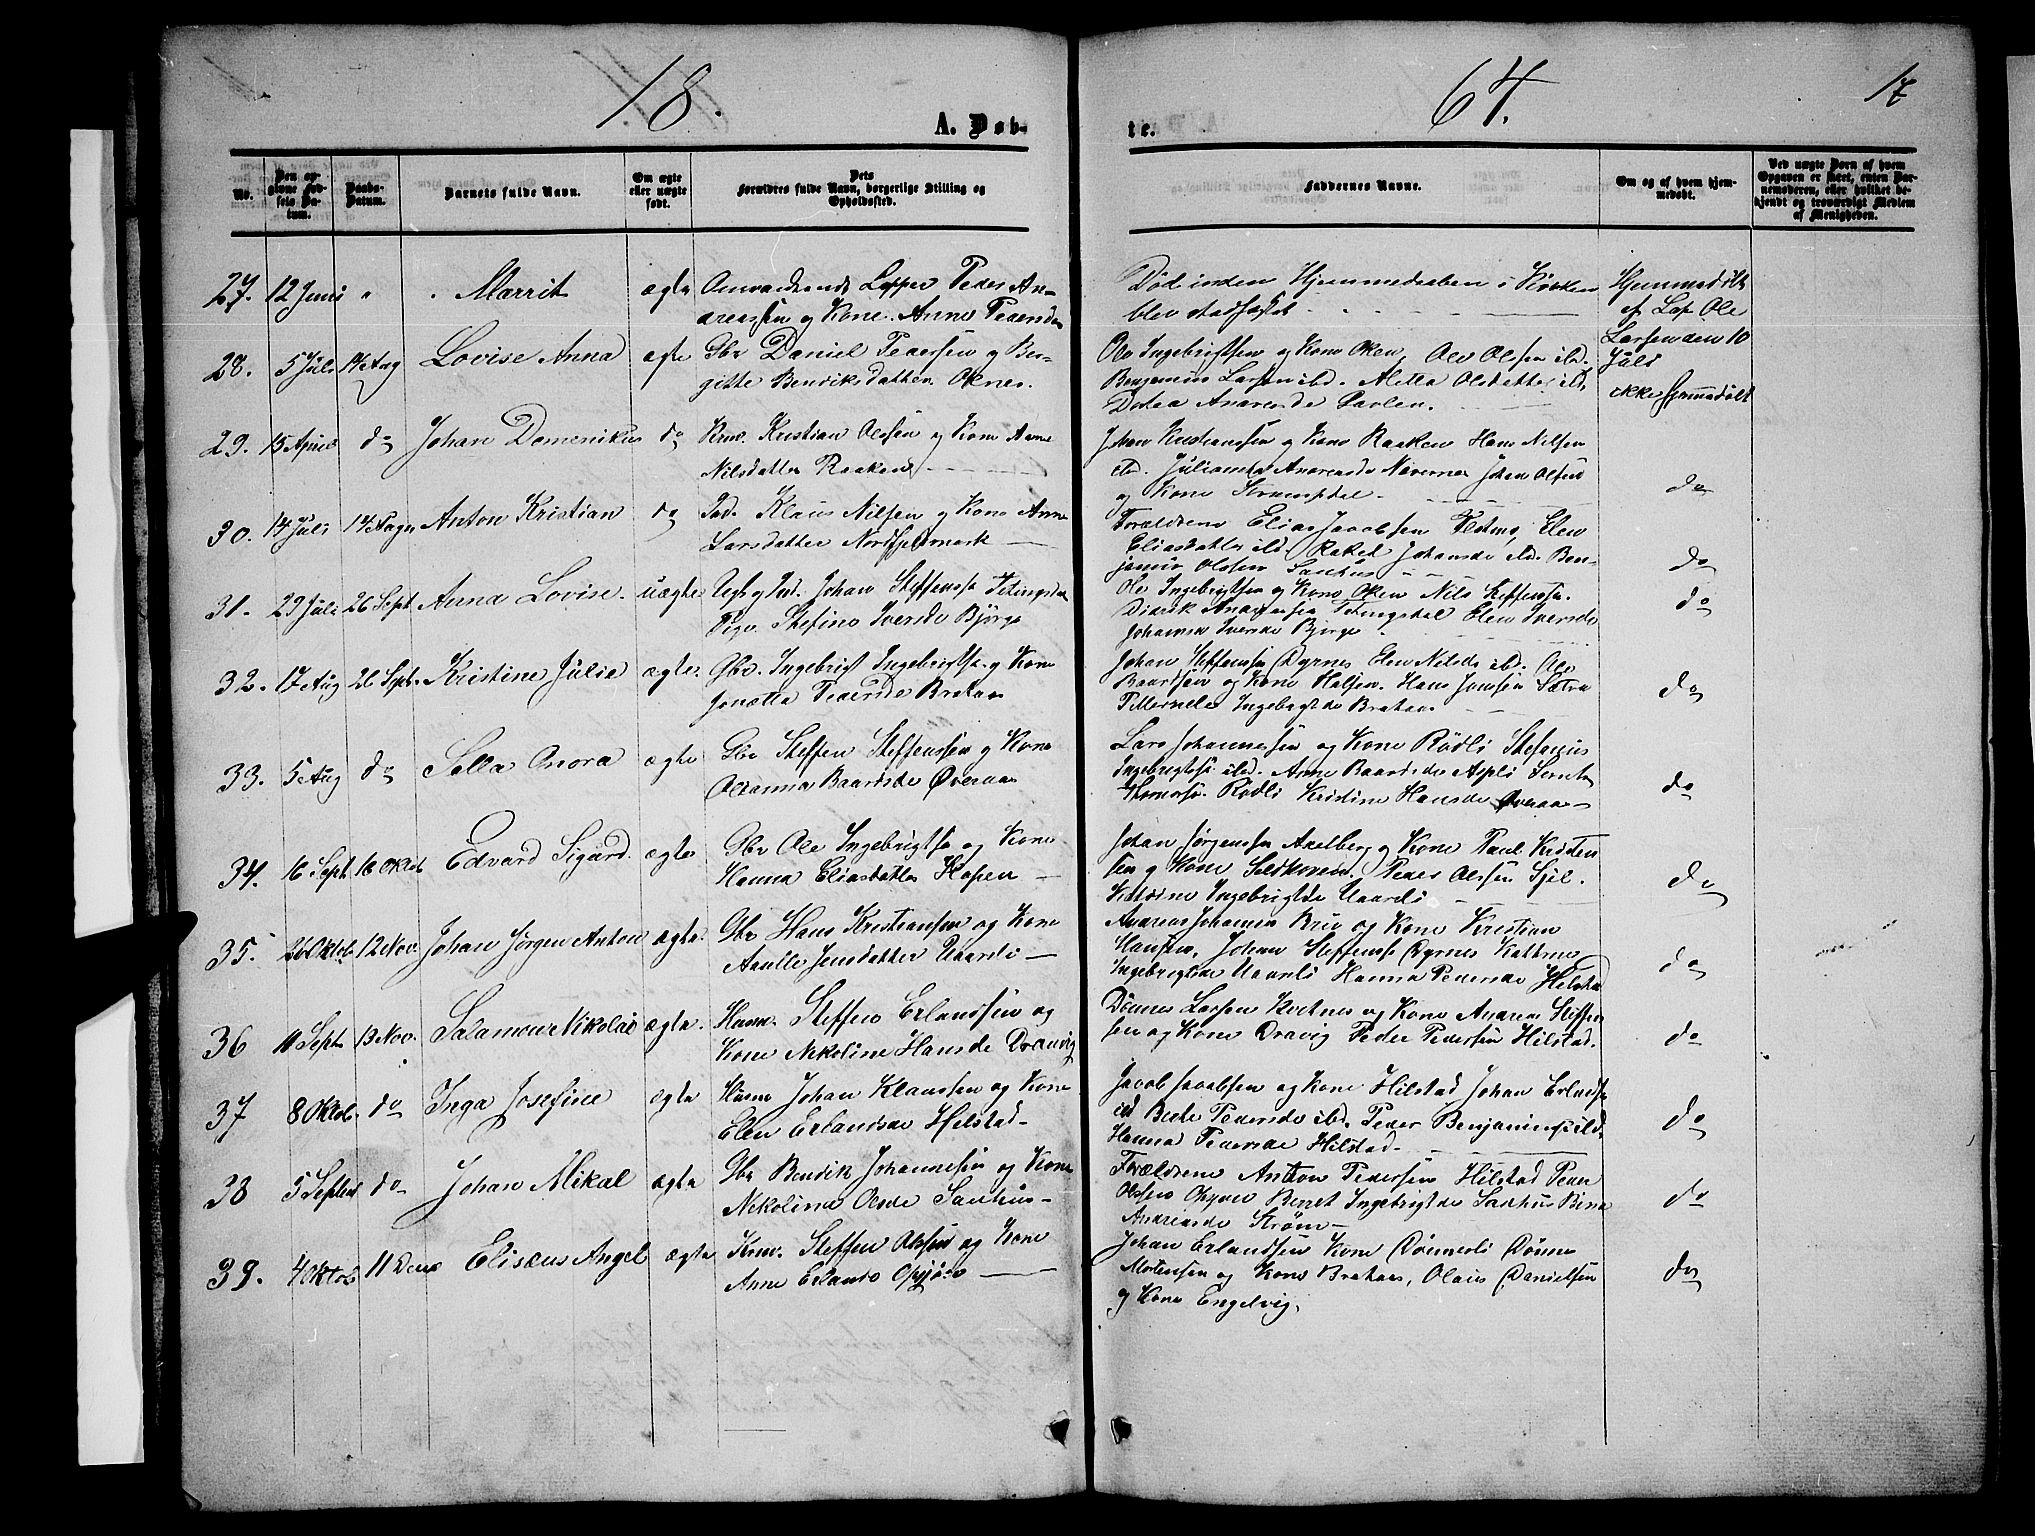 18.
64.
17
A. Døb-
te.
No.
Den opgivne Fødsels Datum.
Daabs-Datum.
Barnets fulde Navn.
Om ægte eller uægte født.
Dets Forældres fulde Navn, borgerlige Stilling og Opholdssted.
Faddernes Navne.
Om og af hvem hjemmedøbt.
Ved uægte Børn af hvem Opgaven er skeet, enten Barnemoderen, eller hvilket bekjendt og troværdigt Medlem af Menigheden.
27. 12 Juni " Marrit ægte Omvandrende Lapper Peder An-
dreassen og Kone Anne Pedersda
Død inden Hjemmedaaben i Kirken
blev stadfæstet
Hjemmedøbt
af Lap Ole
Larsen den 10
Juli
28. 5 Juli 14 Aug Lovise Anna ægte Gbr Daniel Pedersen og Ber-
gitte Bendiksdatter Oknes.
Ole Ingebrigtsen og Kone Oken, Ole Olsen ibd.
Benjamin Larsen ibd. Aletta Olsdatter ibd.
Andreasde
ikke hjemmedøbt
29. 15 April do Johan Domenikus do Kristian Olsen og Kone Anne
Nilsdatter Raaken
Johan Kristiansen og Kone Raaken Hans Nilsen
ibd. Julianna Andreasde Johan Olsen
og Kone
do
30. 14 Juli 14 Aug Anton Kristian do Ind. Klaus Nilsen og Kone Anne
Larsdatter
Forældrene Elias Jacobsen Elen
Eliasdatter ibd. Rakel Johansde ibd. Ben-
jamin Olssen Saxhus
do
31. 29 Juli 26 Sept Anna Lovise. uægte Ugb og Ind. Johan Steffenss
Pige. Stefine Iversde Bjørge
Ole Ingebrigtsen og Kone Oken Nils Steffenss.
Didrik Andreassen Elen Iversde
Johanna Iversde Bjørge
do
32. 17 Aug 26 Sept. Kristine Julia ægte. Gbr. Ingebrigt Ingebrigtss. og Kone
Jonetta Pedersde Brataas
Johan Steffensen Dyrnes Elen Nilsde ibd. Ole
Baardsen og Kone Halsen. Hans Jonsen Sætra
Ingebrigtde Brataas
do
33. 5 Aug do Sella ægte Gbr Steffen Steffenssen og Kone
Olianna Baardsde Øveraa
Lars Johannesen og Kone Rødli Stefanus
Ingebrigtss. ibd. Anne Baardsde Aspli
Rødli Kristine Hansde Øveraa
do
34. 16 Sept. 16 Oktob Edvard Sigurd. ægte Gbr Ole Ingebrigtss og Kone
Hanna Eliasdatter Hopen
Johan Jørgenssen Axelberg og Kone Paul Kristen
sen og Kone Peder Olssen
Katrine Ingebrigtde Uaardi
do
35. 26 Oktob. 12 Nov. Johan Jørgen Anton ægte. Gbr Hans Kristiansen og Kone
Jensdatter
Andreas Johansen og Kone Kristian
Johan Steffenss Dyrnes Katrine
Ingebrigtde Hanna Pedersde Hilstad
do
36 11 Sept 13 Nov. Salamon Nikolai ægte. Husm. Steffen Erlandssen og
Kone Nekoline Hansde Dravvig
Dønnes Larsen og Kone Andrea Steffen
sen og Kone Dravig Peder Pedersen Hilstad.
do
37 8 Oktob. do Inga Josefine ægte Husm Johan Klaussen og Kone
Elen Erlandsde Hilstad
Jacob Jacobsen og Kone Hilstad Johan Erlandss
ibd Berte Pedersde ibd. Peder Benjamins ibd.
Hanna Pedersde Hilstad.
do
38 5 Septem do Johan Mikal ægte Gbr Bendik Johannesen og Kone
Nekolina Olsde Saxhus
Forældrene Anton Pedersen Hilstad Peder
Olssen Berret Ingebrigtde Saxhus Bina
Andreasde Strøm
do
39. 4 Oktob 11 Decem Elisæus Angel ægte Steffen Olssen og Kone
Anne Erlands
Johan Erlandsen Kone Dønnesli Dønne
Mortensen og Kone Brataas, Olaus Danielsen
og Kone Engelvig.
do